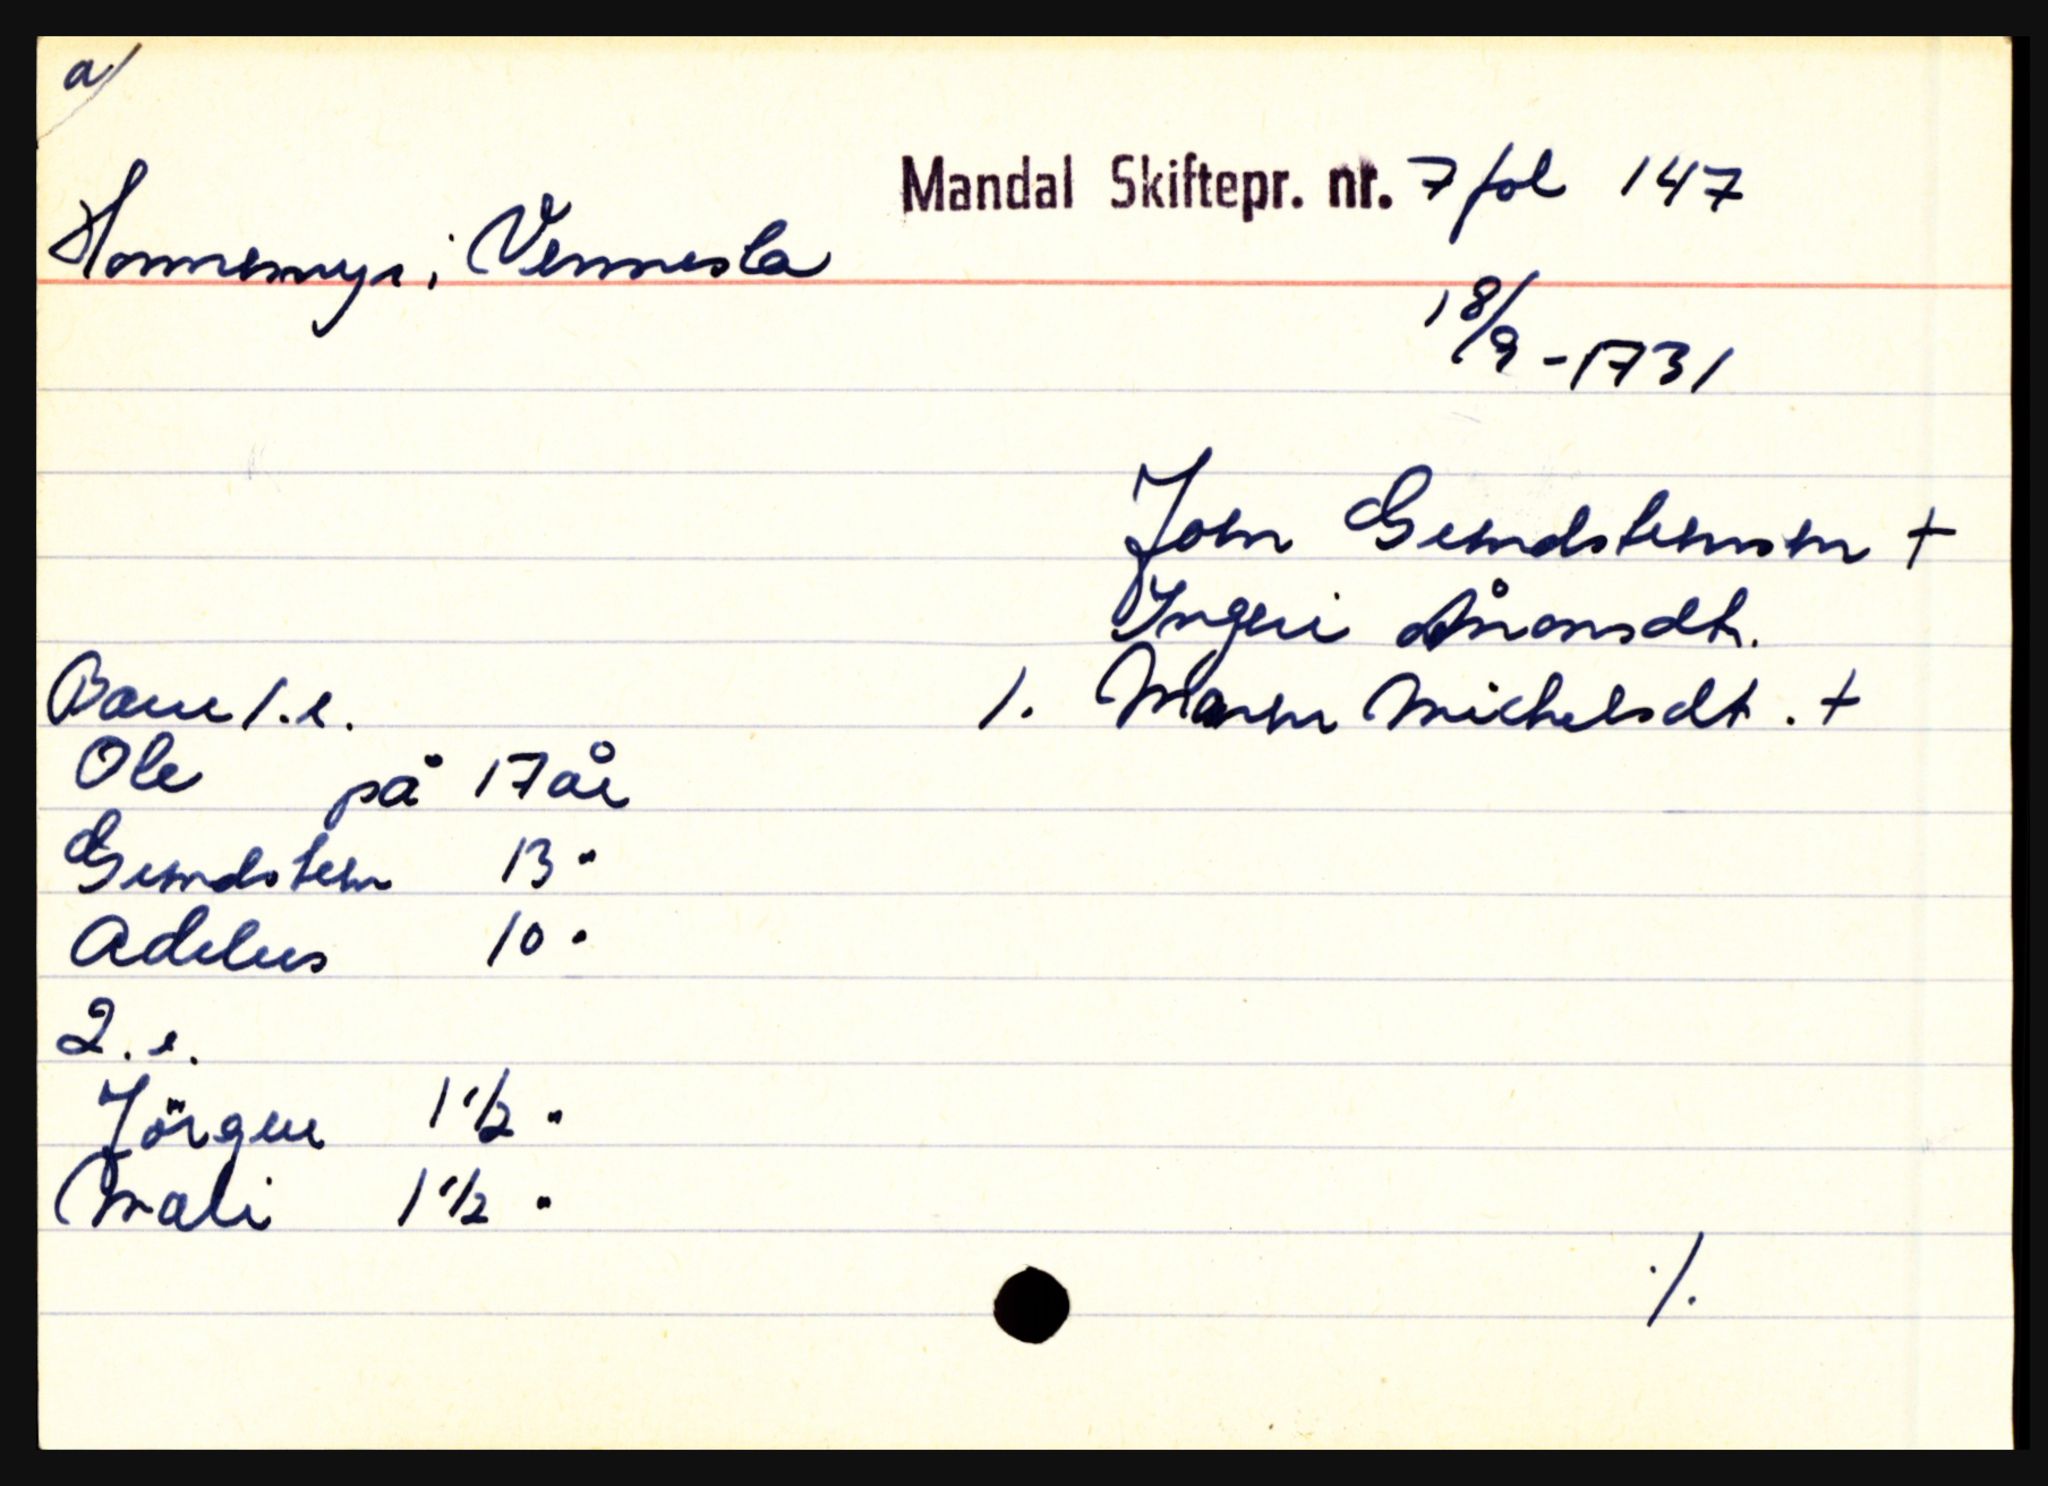 a/
Mandal Skiftepr. nr. 7 fol 147
Honnemyr, Vennesla
18/9-1731
Joen Gundstensen +
Ingeri Ånonsdt.
Barn 1.e.
1. Maren Michelsdt. +
Ole på 17 år
Gundsten 13 "
Adelus 10 "
2.e.
Jörgen 1 1/2 "
Mali 1 1/2 "
./.